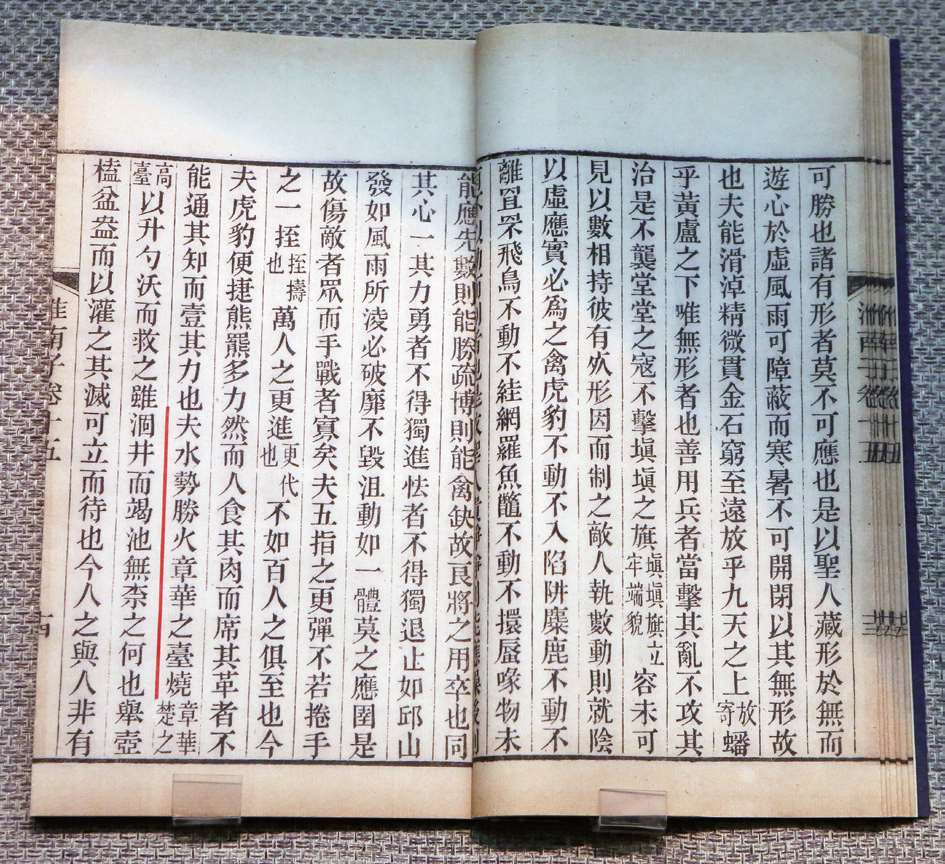 可勝也諸有形者莫不可應也是以聖人藏形於無而
遊心於虛風雨可障蔽而寒暑不可開閉以其無形故
也夫能滑淖精微貫金石窮至遠放乎九天之上放寄蟠
乎黃盧之下唯無形者也善用兵者當擊其亂不攻其
治是不襲堂堂之寇不擊塡塡之旗塡塡旗立牢端貌容未可
見以數相持彼有死形因而制之敵人執數動則就陰
以虛應實必爲之禽虎豹不動不入陷阱麋鹿不動不
離罝罘飛鳥不動不絓網羅魚鼈不動不擐唇喙物未
能應先數則能勝疏博則能禽缺故良將之用卒也同
其心一其力勇者不得獨進怯者不得獨退止如邱山
發如風雨所淩必破靡不毀沮動如一體莫之應圉是
故傷敵者眾而手戰者寡矣夫五指之更彈不若捲手
之一挃挃擣也萬人之更進更代也不如百人之俱至也今
夫虎豹便捷熊羆多力然而人食其肉而席其革者不
能通其知而壹其力也夫水勢勝火章華之臺燒章華楚之
高臺以升勺沃而救之雖涸井而竭池無柰之何也舉壺
榼盆盎而以灌之其滅可立而待也今人之與人非有
淮南子卷十五